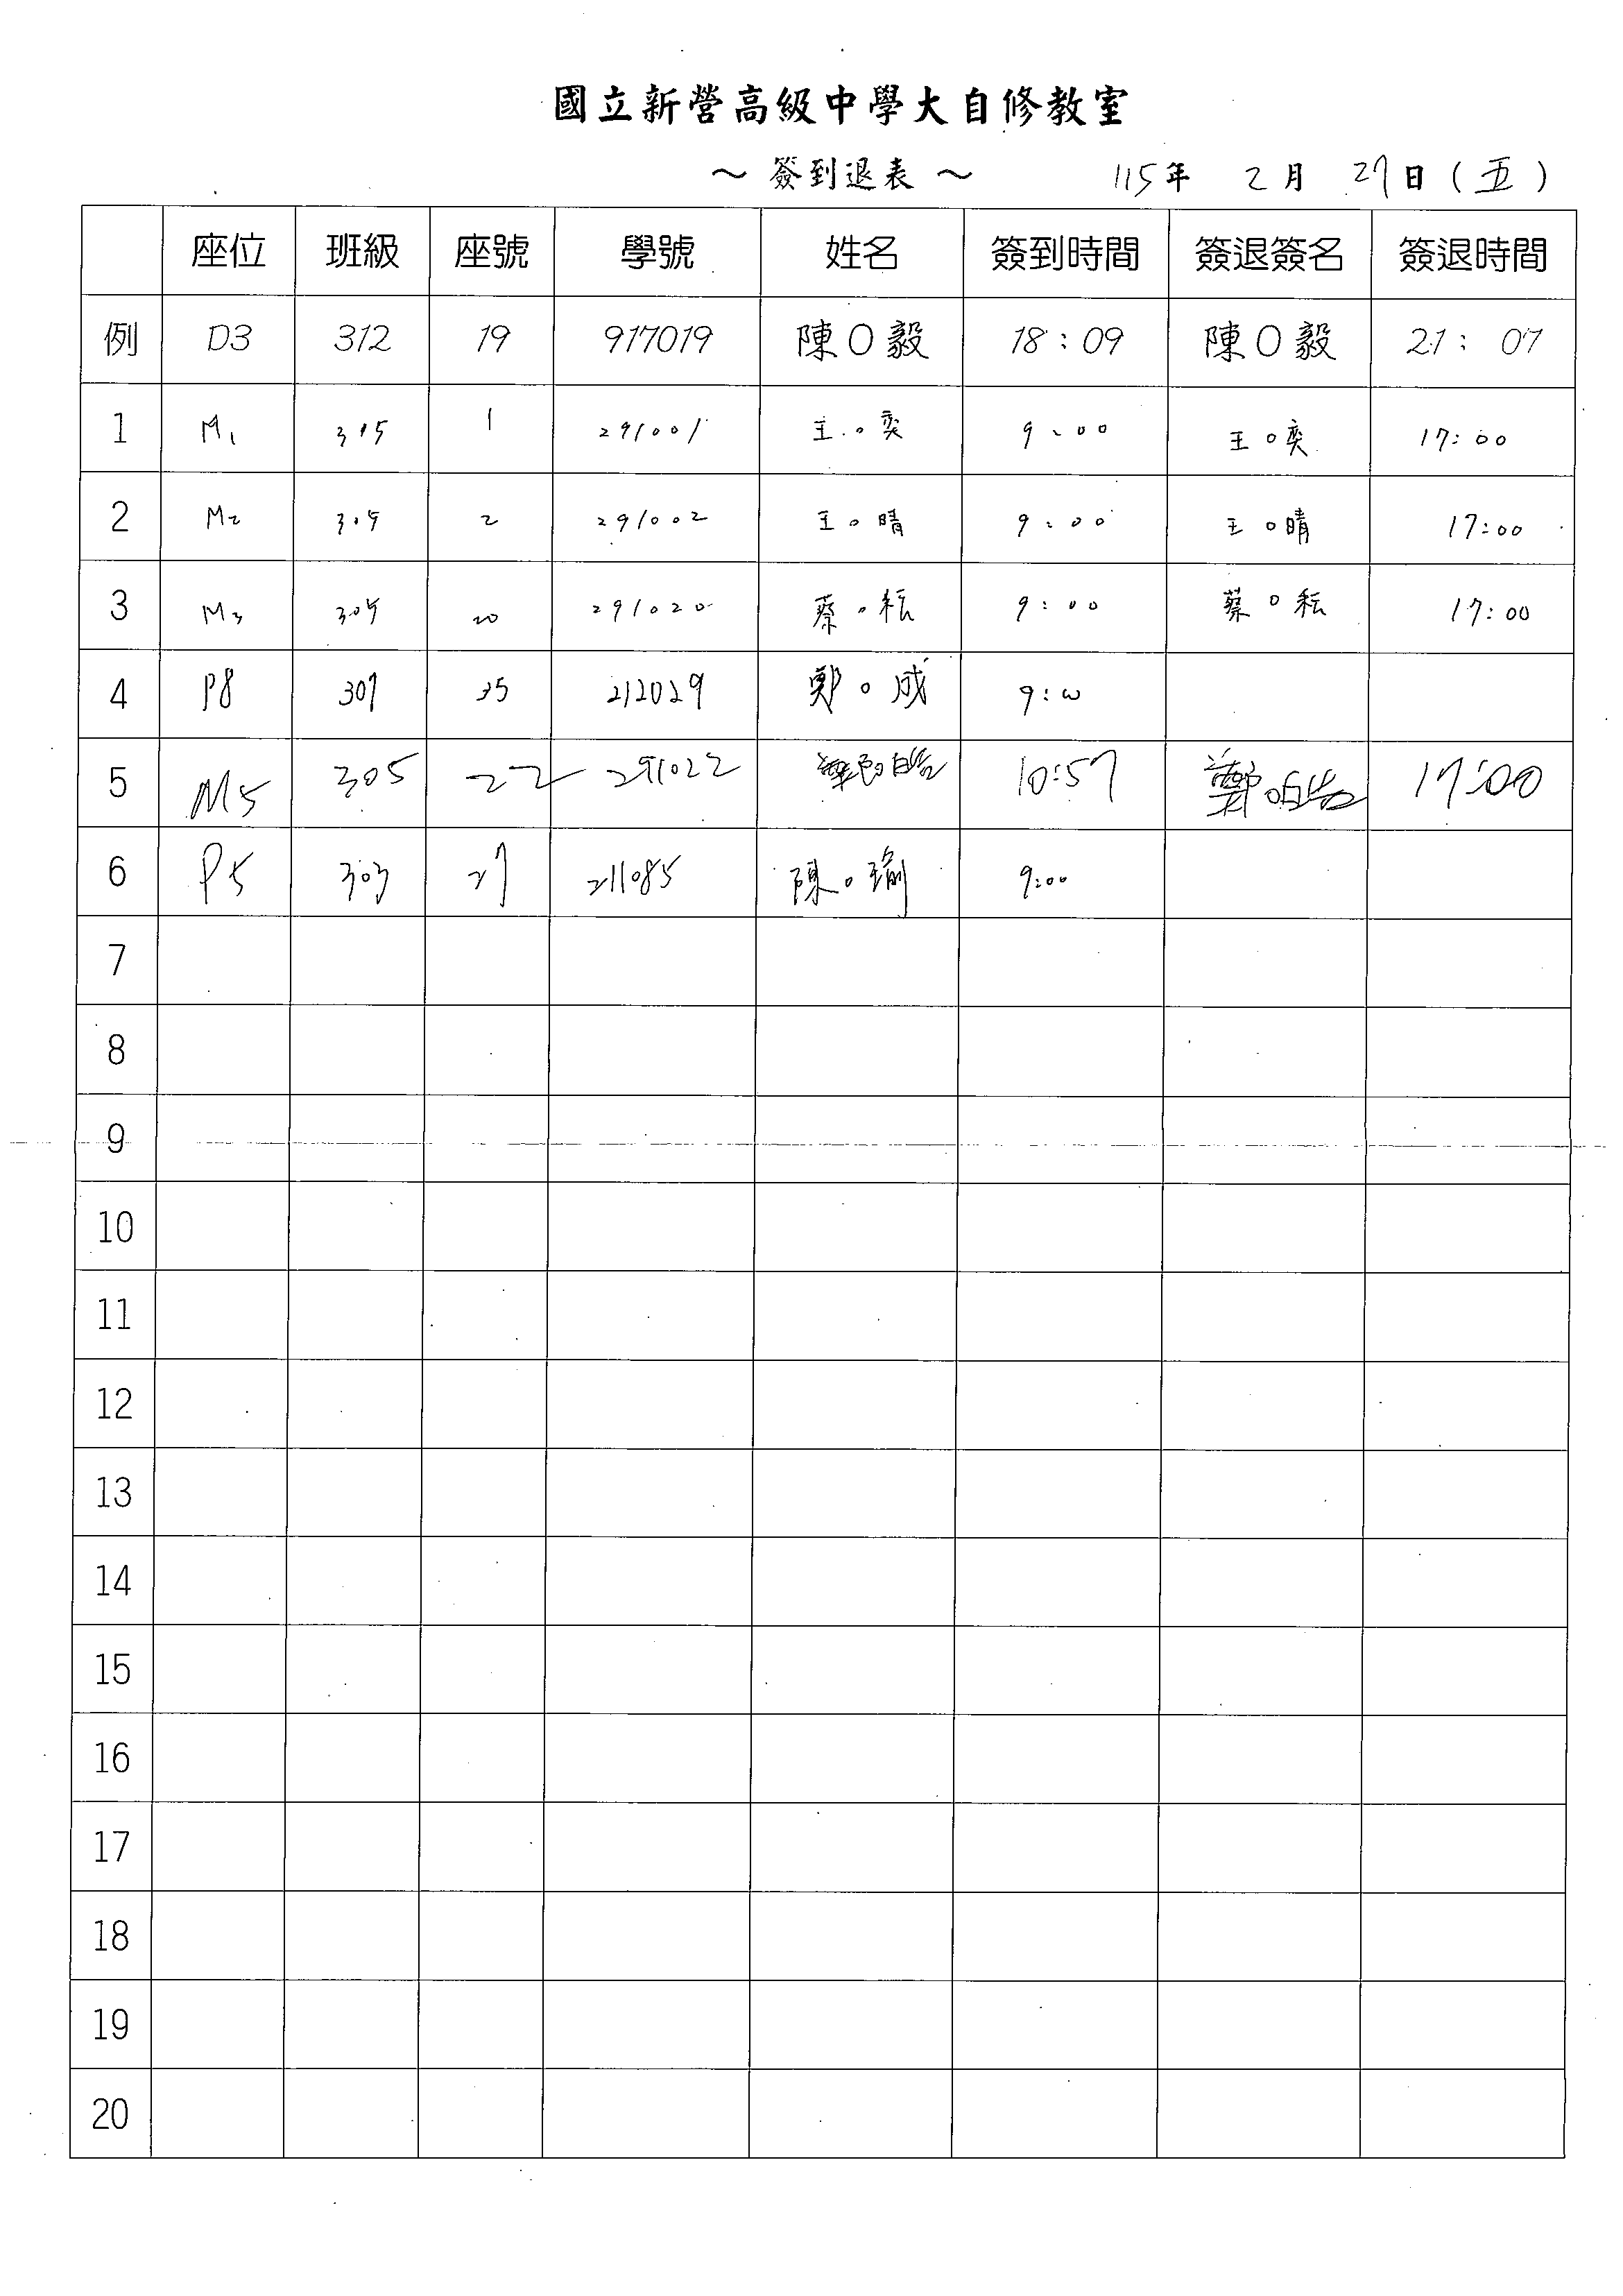 國立新營高級中學大自修教室
～ 簽到退表 ～ 115年 2月 27日(五)
座位 班級 座號 學號 姓名 簽到時間 簽退簽名 簽退時間
例 D3 312 19 917019 陳○毅 18：09 陳○毅 21：07
1 M1 305 1 291001 王○奕 9:00 王○奕 17:00
2 M2 305 2 291002 王○晴 9:00 王○晴 17:00
3 M3 305 20 291020 蔡○耘 9:00 蔡○耘 17:00
4 P8 307 35 212029 鄭○成 9:00
5 M5 305 22 291022 鄭○皓 10:57 鄭○皓 17:00
6 P5 303 27 211085 陳○瑜 9:00
7
8
9
10
11
12
13
14
15
16
17
18
19
20